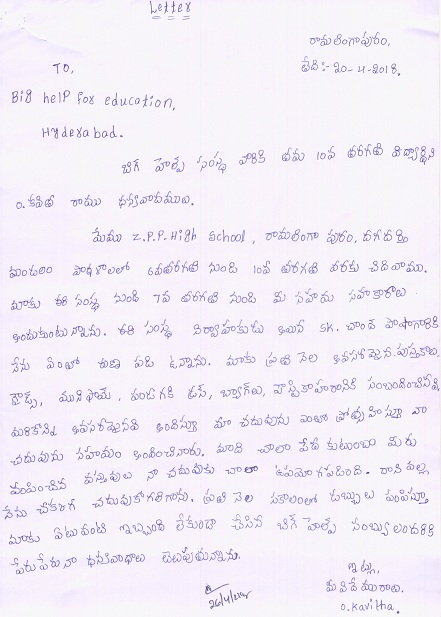 Letter
రామలింగాపురం,
తేది:- 20-4-2018.
To,
Big help for education,
Hyderabad.
బిగ్ హెల్ప్ సంస్థ వారికి తమ 10వ తరగతి విద్యార్థిని
O. కవిత రాము ధన్యవాదములు.
మేము Z.P.P. High School, రామలింగా పురం, దగదర్తి
మండలం పాఠశాలలో 6వ తరగతి నుండి 10వ తరగతి వరకు చదివాము.
మాకు ఈ సంస్థ నుండి 7వ తరగతి నుండి మీ సహాయ సహకారాలు
అందుకుంటున్నాను. ఈ సంస్థ నిర్వాహకుడు అయిన SK. చాంద్ పాషాగారికి
నేను ఎంతో రుణ పడి ఉన్నాను. మాకు ప్రతి నెల అవసరమైన పుస్తకాలు,
యూనిఫామ్, పండుగకి డ్రస్, బ్యాగ్‌లు, పౌష్టికాహారానికి సంబంధించినవి,
మరికొన్ని అవసరమైనవి అందిస్తూ మా చదువును ఎంతో ప్రోత్సహిస్తూ నా
చదువుకు సహాయం అందించినారు. మాది చాలా పేద కుటుంబం మీరు
పంపించిన వస్తువులు నా చదువుకు చాలా ఉపయోగపడింది. దాని వల్ల
నేను చదువుకోగలిగాను. ప్రతి నెల సకాలంలో డబ్బులు పంపిస్తూ
మాకు ఎటువంటి ఇబ్బంది లేకుండా చేసిన బిగ్ హెల్ప్ సభ్యులందరికి
పేరుపేరునా ధన్యవాదాలు తెలుపుతున్నాను.
ఇట్లు,
మీ విధేయురాలు.
O. Kavitha.